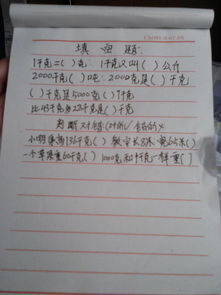 填空题.
1千克=( )克. 1千克又叫( )公斤
2000千克( )吨. 2000克是( )千克
( )千克是5000克( )1千克
比48千克多22千克是( )千克
判断对错(对的√ 错的×
小明体重136千克( ) 教室长8米,宽65米( )
一个苹果重60千克( ) 1000克和1千克一样重( )